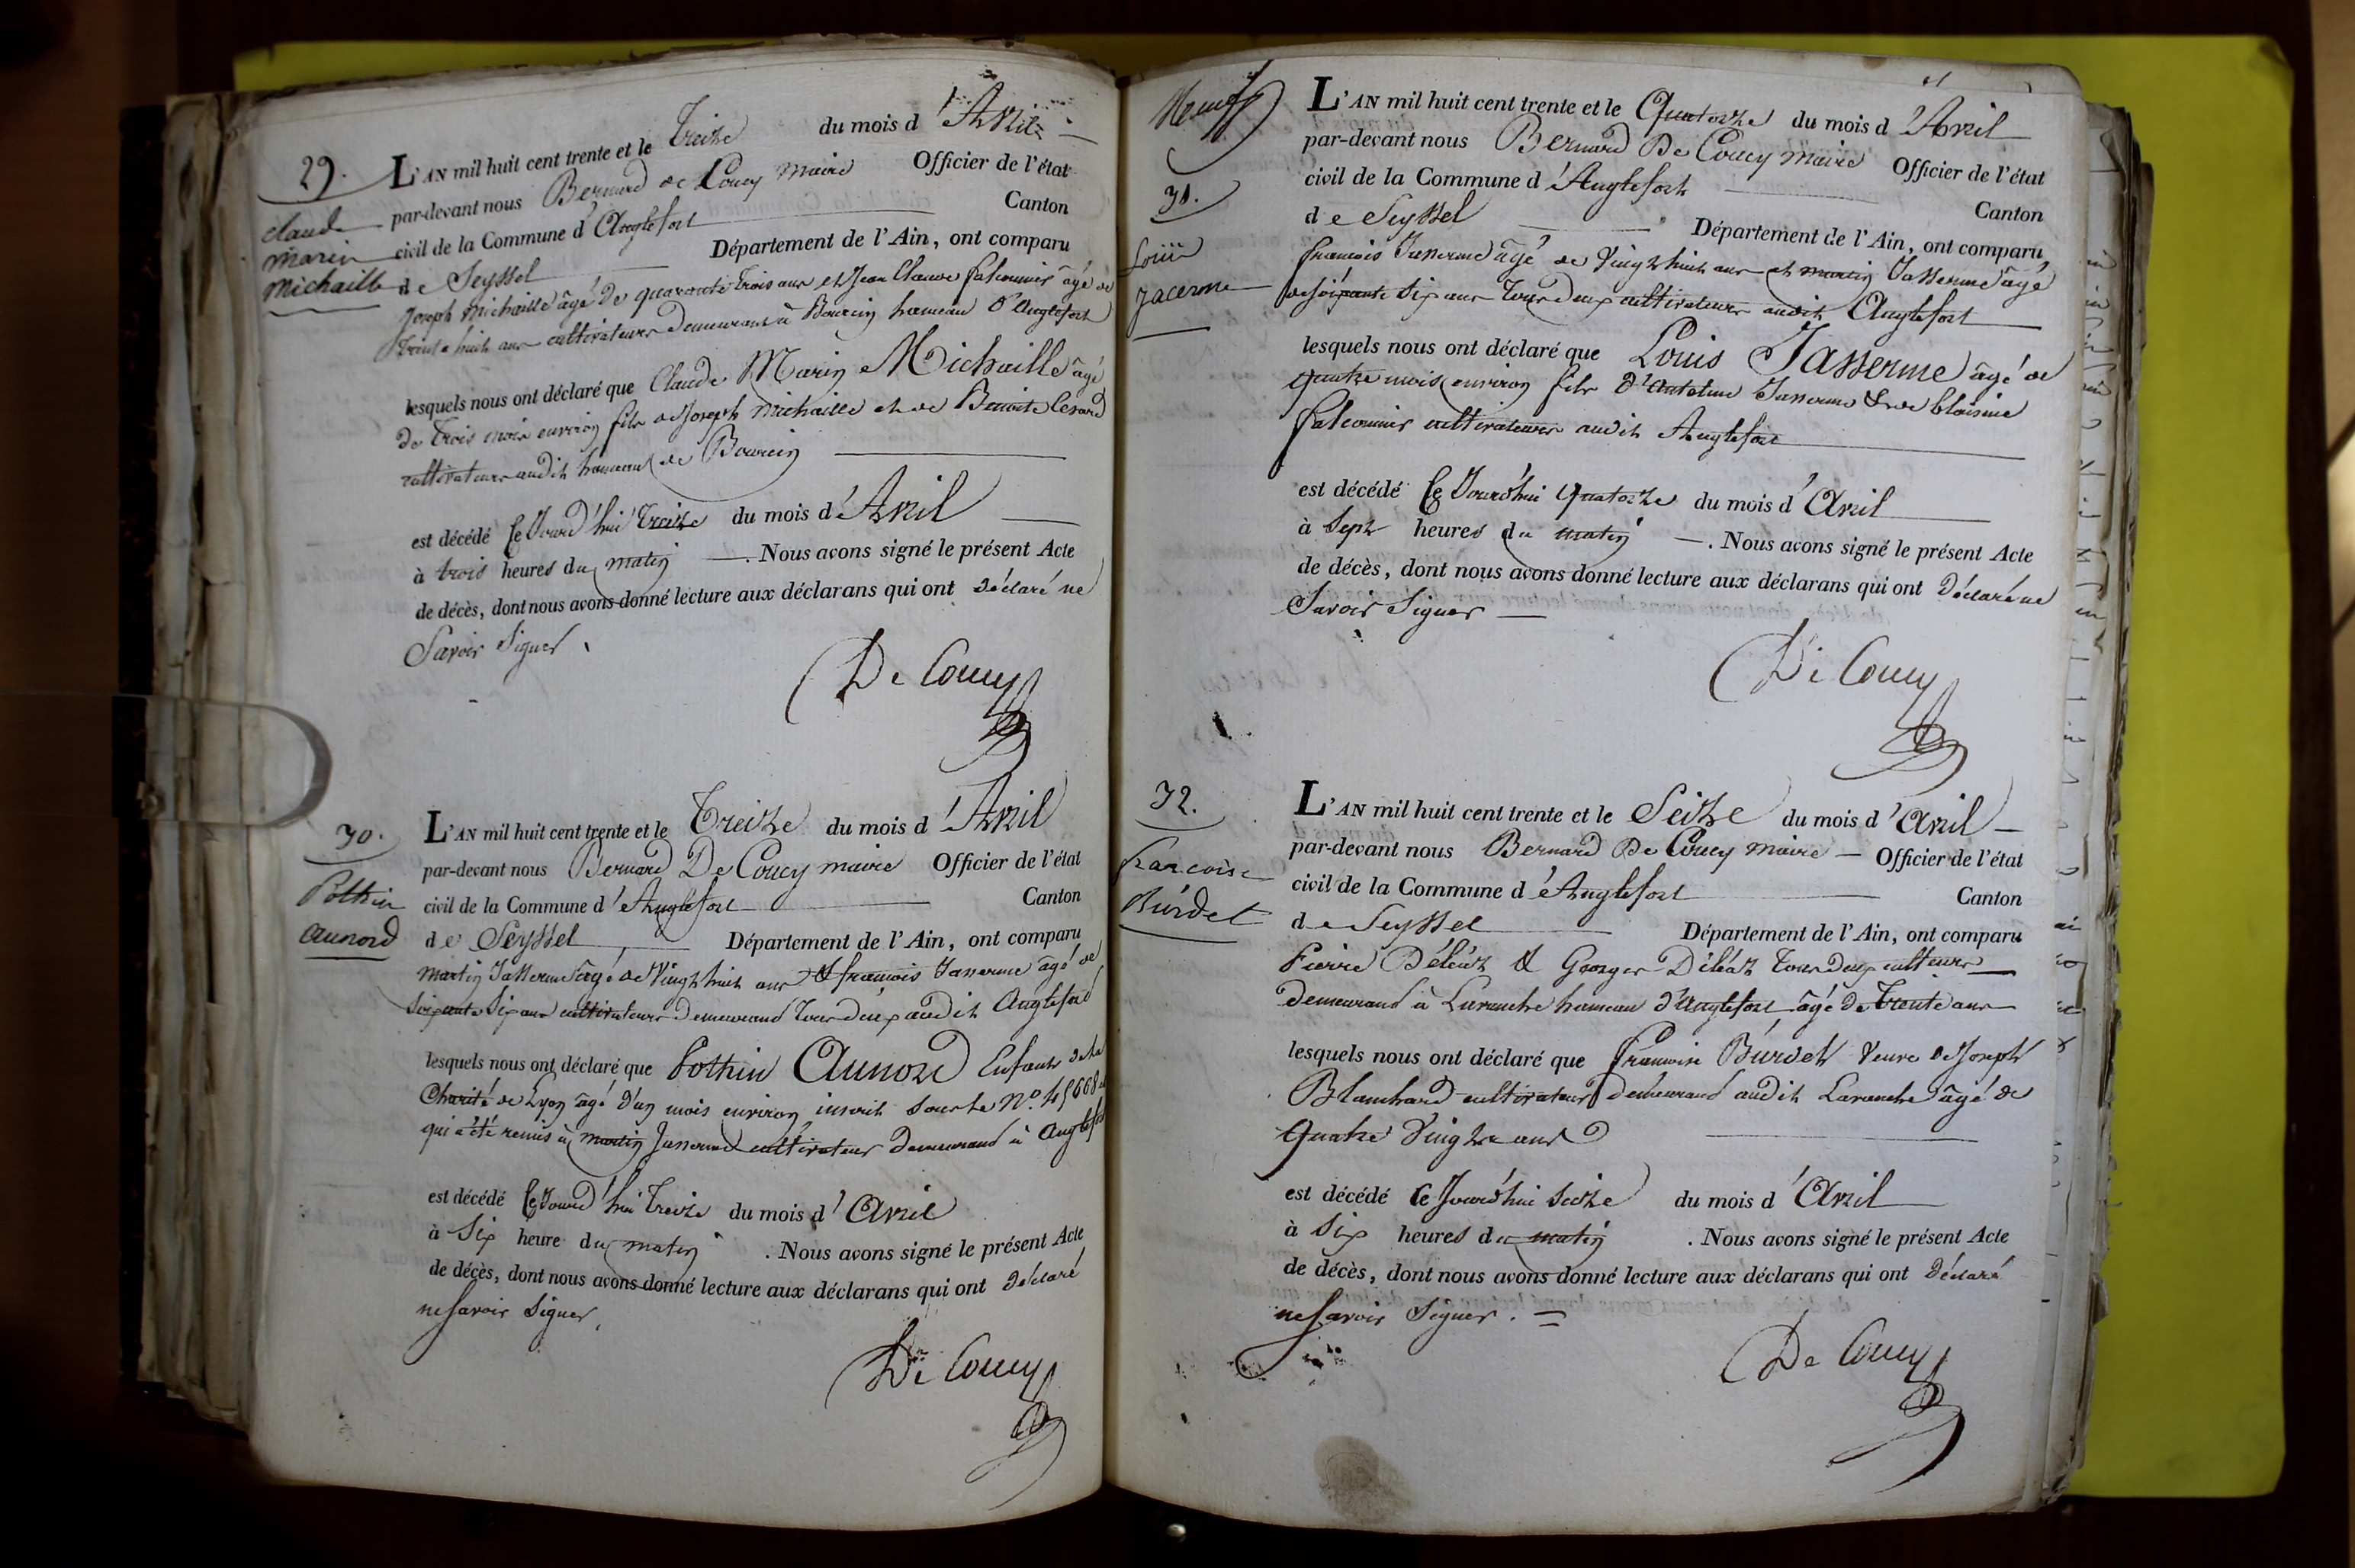 29.
Claude
Marin
Michaille
L'AN mil huit cent trente et le Treize du mois d'Avril
par-devant nous Bernard de Coucy maire Officier de l'état
civil de la Commune d'Anglefort Canton
de Seyssel Département de l'Ain, ont comparu
Joseph Michaille âgé de quarante trois ans et Jean Claude falconnier âgé de
trente huit ans cultivateurs demeurans à Bourcin hameau d'Anglefort
lesquels nous ont déclaré que Claude Marin Michaille âgé
de Trois mois environ fils de Joseph Michaille et de Benoite
cultivateurs audit hameau de Bourcin
est décédé Ce Jourd'hui treize du mois d'Avril
à trois heures du matin. Nous avons signé le présent Acte
de décès, dont nous avons donné lecture aux déclarans qui ont déclaré ne
Savoir Signer
De Coucy
30.
Pothin
Aunord
L'AN mil huit cent trente et le Treize du mois d'Avril
par-devant nous Bernard De Coucy maire Officier de l'état
civil de la Commune d'Anglefort Canton
de Seyssel Département de l'Ain, ont comparu
Martin Jasserme âgé de Vingt huit ans & francois Jasserme âgé de
Soixante Six ans cultivateurs demeurand tous deux audit Anglefort
lesquels nous ont déclaré que Pothin Aunord Enfant de la
Charité de Lyon âgé d'un mois environ inscrit sous le N.º 45668
qui a été remis à Martin Jasserme cultivateur demeurand à Anglefort
est décédé Ce Jourd'hui Treize du mois d'Avril
à Six heure du matin. Nous avons signé le présent Acte
de décès, dont nous avons donné lecture aux déclarans qui ont déclaré
ne Savoir Signer,
De Coucy
Neuf
31.
Louis
Jacerme
L'AN mil huit cent trente et le Quatorze du mois d'Avril
par-devant nous Bernard De Coucy maire Officier de l'état
civil de la Commune d'Anglefort Canton
de Seyssel Département de l'Ain, ont comparu
francois Jasserme âgé de Vingt huit ans et martin Jasserme âgé
de soixante Six ans Tous deux cultivateurs audit Anglefort
lesquels nous ont déclaré que Louis Jasserme âgé de
quatre mois environ fils d'Antelme Jasserme & de Claisine
falconnier cultivateurs audit Anglefort
est décédé Ce Jourd'hui Quatorze du mois d'Avril
à Sept heures du matin. Nous avons signé le présent Acte
de décès, dont nous avons donné lecture aux déclarans qui ont Déclaré ne
Savoir Signer
De Coucy
32.
francoise
Burdet
L'AN mil huit cent trente et le Seitze du mois d'Avril
par-devant nous Bernard De Coucy maire Officier de l'état
civil de la Commune d'Anglefort Canton
de Seyssel Département de l'Ain, ont comparu
Pierre Déléaz & Georges Déléaz Tous deux
demeurand à Lavanche hameau d'Anglefort âgé de trente ans
lesquels nous ont déclaré que francoise Burdet Veuve de Joseph
Blanchard cultivateur demeurand audit Lavanche âgé de
Quatre Vingts ans
est décédé Ce Jourd'hui Seitze du mois d'Avril
à Six heures du matin. Nous avons signé le présent Acte
de décès, dont nous avons donné lecture aux déclarans qui ont déclaré
ne Savoir Signer.
De Coucy